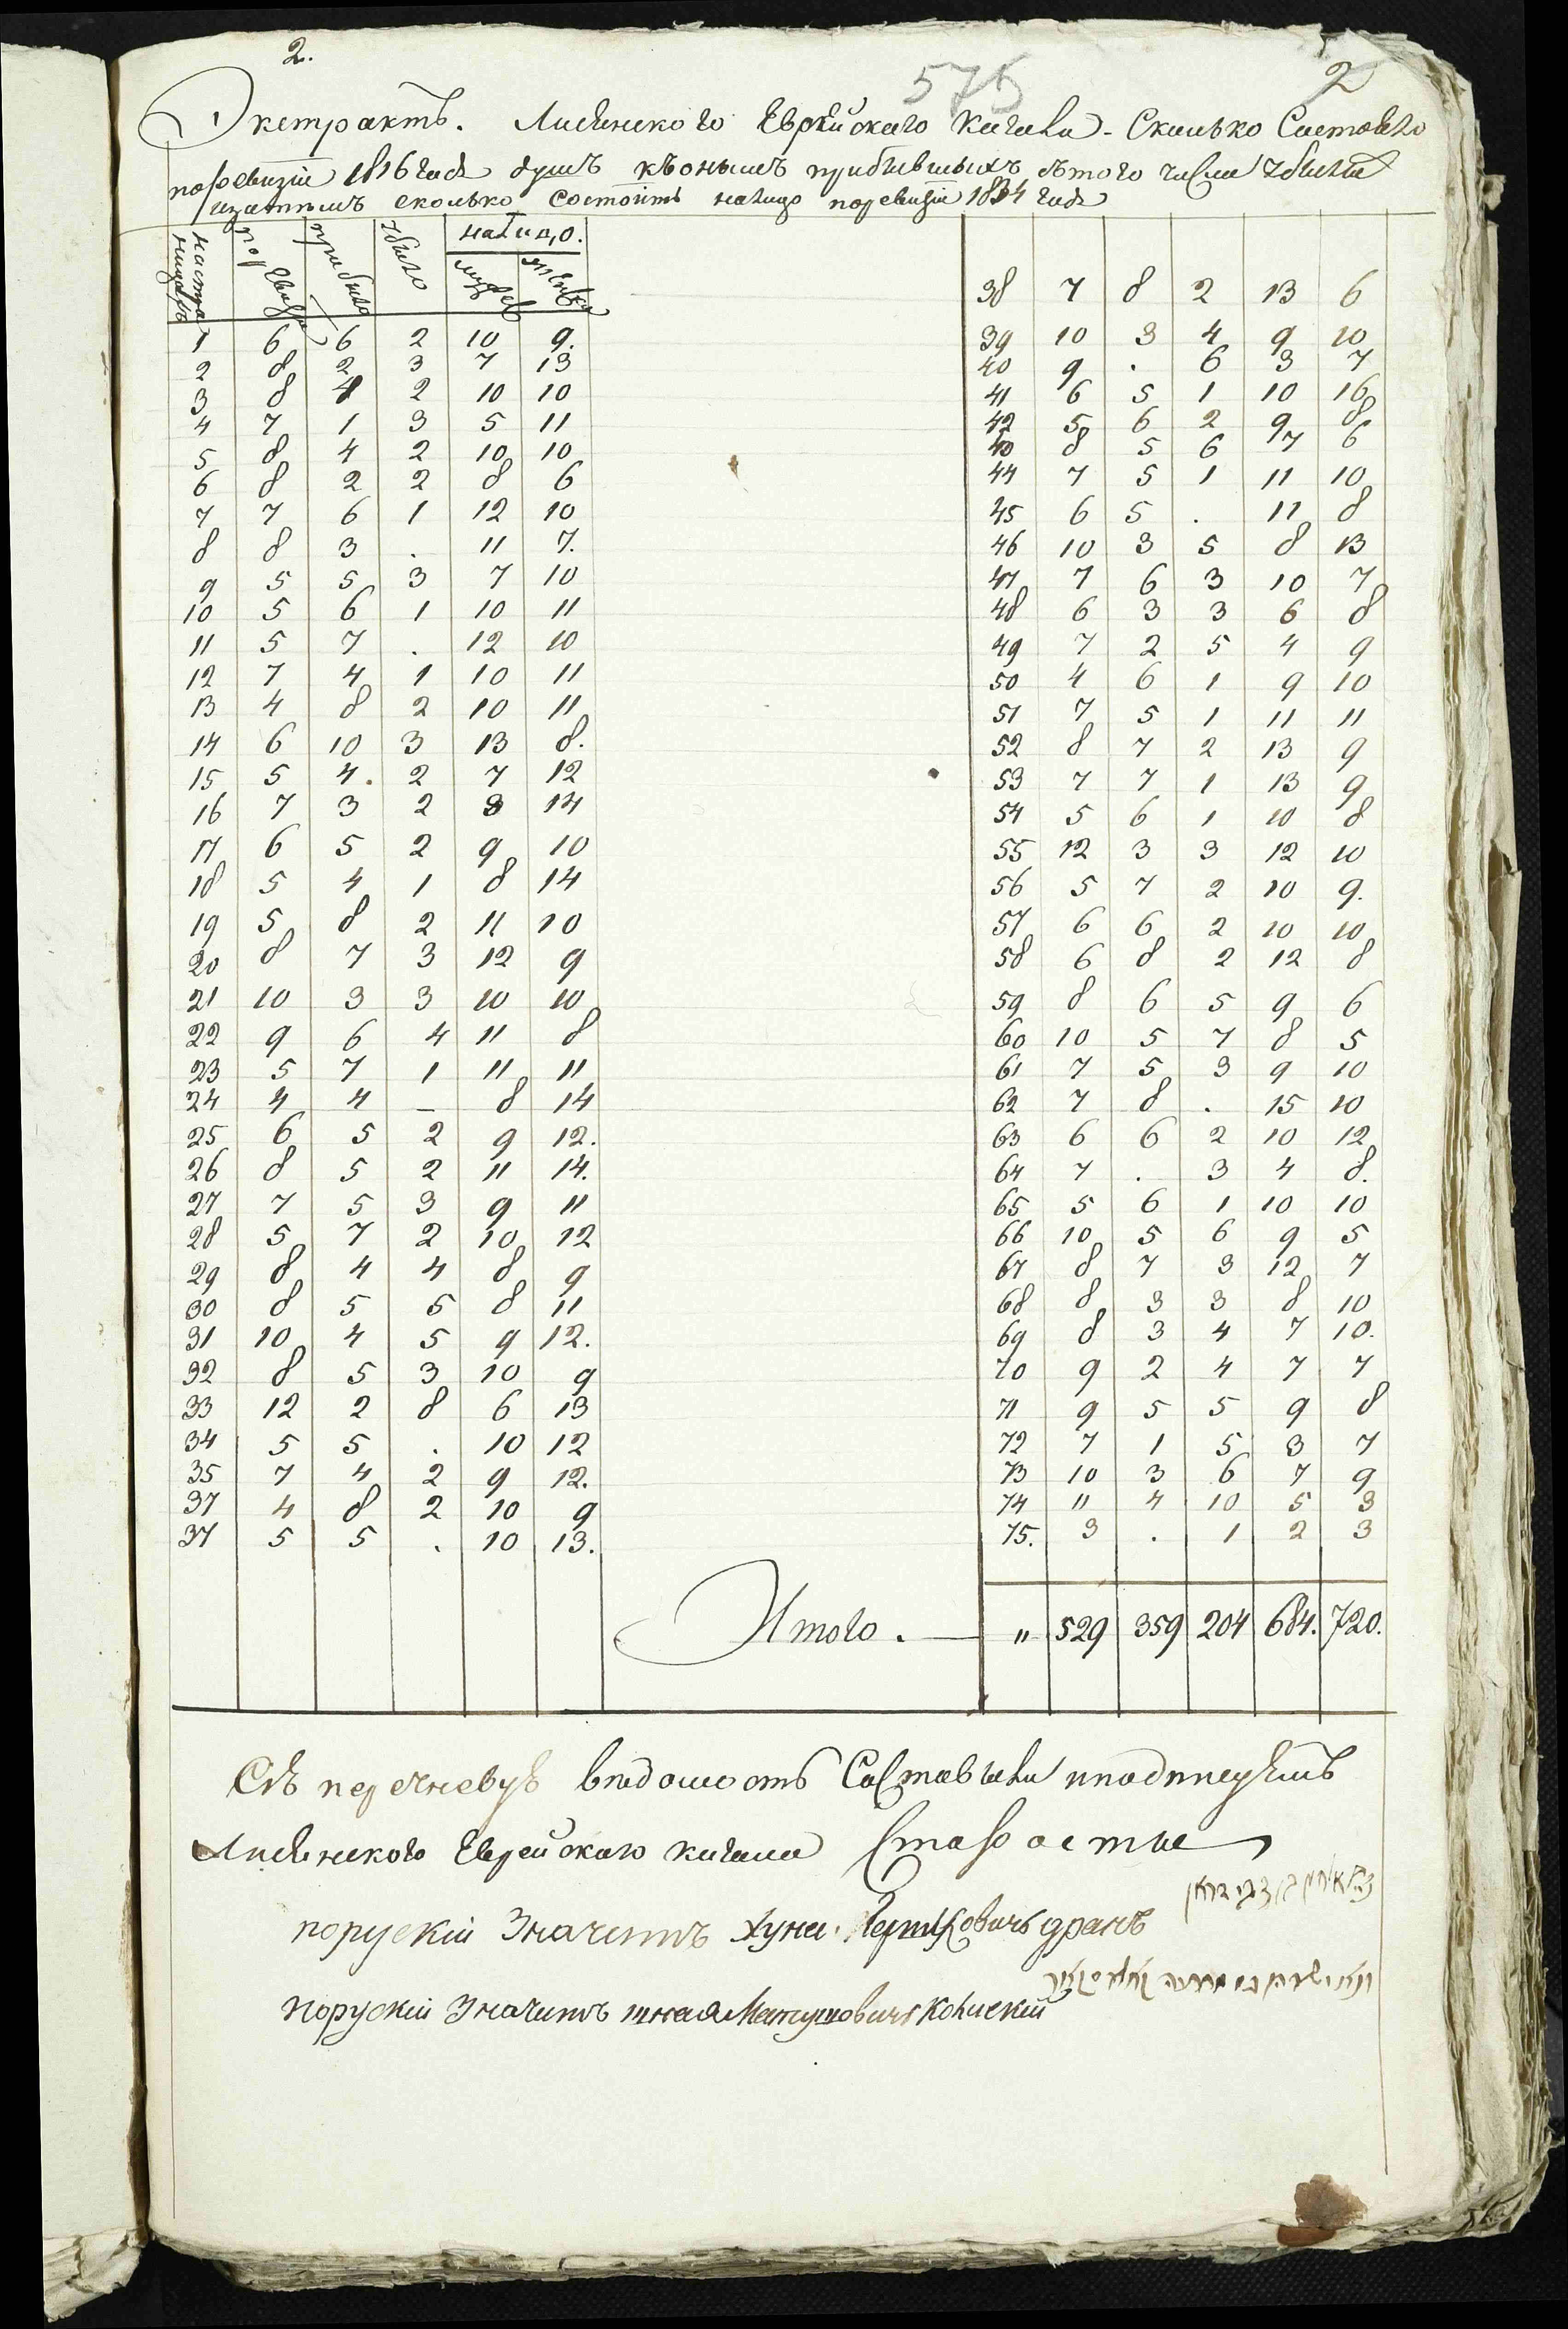 2.
575
2
Экстрактъ. Лисянского Еврейскаго Кагала. Сколько Состояло
поревизіи 1816 года душъ къонымъ прибывшыхъ изтого числа убыли
изатемъ сколько состоитъ налицо поревизіи 1834 года
настра ницахъ поревизіи прибыло убыло налицо.
1 6 6 2 10 9.
2 8 2 3 7 13
3 8 4 2 10 10
4 7 1 3 5 11
5 8 4 2 10 10
6 8 2 2 8 6
7 7 6 1 12 10
8 8 3 . 11 7.
9 5 5 3 7 10
10 5 6 1 10 11
11 5 7 . 12 10
12 7 4 1 10 11
13 4 8 2 10 11
14 6 10 3 13 8.
15 5 4. 2 7 12
16 7 3 2 8 14
17 6 5 2 9 10
18 5 4 1 8 14
19 5 8 2 11 10
20 8 7 3 12 9
21 10 3 3 10 10
22 9 6 4 11 8
23 5 7 1 11 11
24 4 4 – 8 14
25 6 5 2 9 12.
26 8 5 2 11 14.
27 7 5 3 9 11
28 5 7 2 10 12
29 8 4 4 8 9
30 8 5 5 8 11
31 10 4 5 9 12.
32 8 5 3 10 9
33 12 2 8 6 13
34 5 5 . 10 12
35 7 4 2 9 12.
37 4 8 2 10 9
37 5 5 . 10 13.
38 7 8 2 13 6
39 10 3 4 9 10
40 9 . 6 3 7
41 6 5 1 10 16
42 5 6 2 9 8
43 8 5 6 7 6
44 7 5 1 11 10
45 6 5 . 11 8
46 10 3 5 8 13
47 7 6 3 10 7
48 6 3 3 6 8
49 7 2 5 4 9
50 4 6 1 9 10
51 7 5 1 11 11
52 8 7 2 13 9
53 7 7 1 13 9
54 5 6 1 10 8
55 12 3 3 12 10
56 5 7 2 10 9.
57 6 6 2 10 10
58 6 8 2 12 8
59 8 6 5 9 6
60 10 5 7 8 5
61 7 5 3 9 10
62 7 8 . 15 10
63 6 6 2 10 12
64 7 . 3 4 8.
65 5 6 1 10 10
66 10 5 6 9 5
67 8 7 3 12 7
68 8 3 3 8 10
69 8 3 4 7 10.
70 9 2 4 7 7
71 9 5 5 9 8
72 7 1 5 3 7
73 10 3 6 7 9
74 11 4 10 5 3
75. 3 . 1 2 3
Итого. — " 529 359 204 684. 720.
Сію перечневую ведомость Составили иподписуемъ
Лисянского Еврейскаго кагала Старосты
порускій Значитъ Хуна
порускій Значитъ Матушовичъ